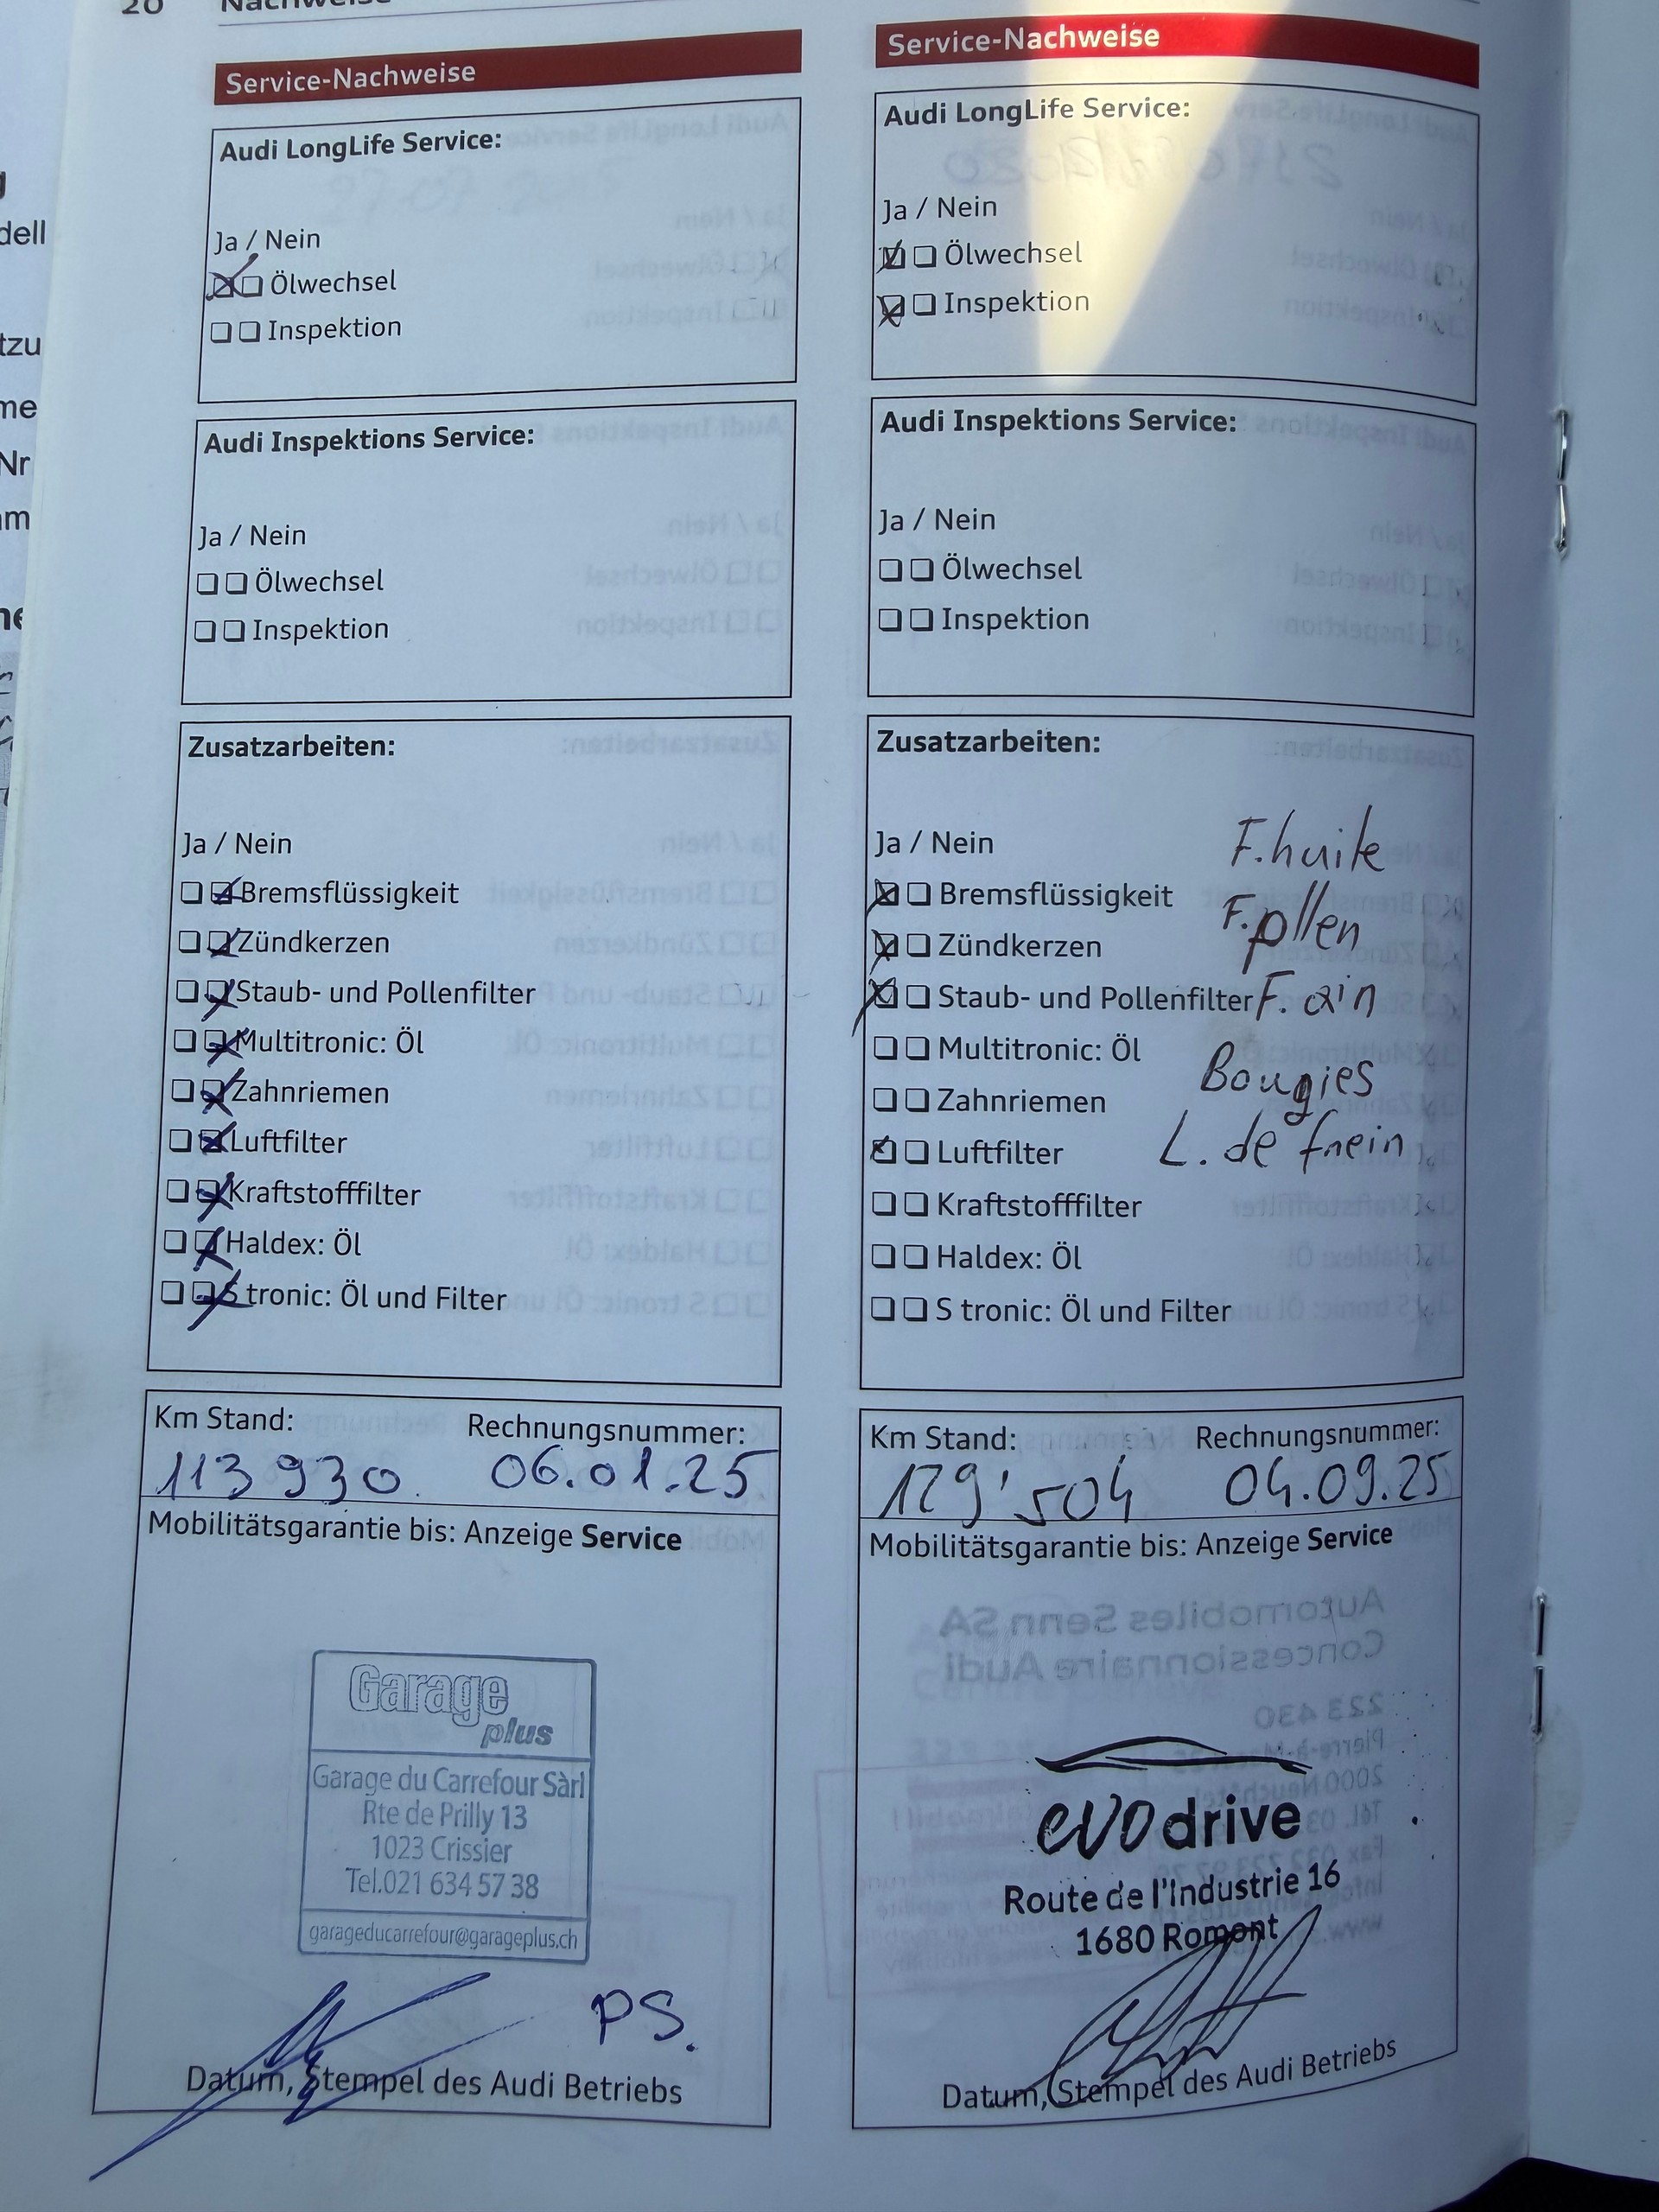 20 Nachweise
Service-Nachweise
Audi LongLife Service:
Ja / Nein
Ölwechsel
Inspektion
Audi Inspektions Service:
Ja / Nein
Ölwechsel
Inspektion
Zusatzarbeiten:
Ja / Nein
Bremsflüssigkeit
Zündkerzen
Staub- und Pollenfilter
Multitronic: Öl
Zahnriemen
Luftfilter
Kraftstofffilter
Haldex: Öl
S tronic: Öl und Filter
Km Stand: Rechnungsnummer:
113 930 06.01.25
Mobilitätsgarantie bis: Anzeige Service
Garage
plus
Garage du Carrefour Sàrl
Rte de Prilly 13
1023 Crissier
Tel.021 634 57 38
garageducarrefour@garageplus.ch
PS.
Datum, Stempel des Audi Betriebs
Service-Nachweise
Audi LongLife Service:
Ja / Nein
Ölwechsel
Inspektion
Audi Inspektions Service:
Ja / Nein
Ölwechsel
Inspektion
Zusatzarbeiten:
Ja / Nein
F.huile
Bremsflüssigkeit
F.pollen
Zündkerzen
Staub- und Pollenfilter F. air
Multitronic: Öl
Bougies
Zahnriemen
L. de frein
Luftfilter
Kraftstofffilter
Haldex: Öl
S tronic: Öl und Filter
Km Stand: Rechnungsnummer:
129'504 04.09.25
Mobilitätsgarantie bis: Anzeige Service
evodrive
Route de l'Industrie 16
1680 Romont
Datum, Stempel des Audi Betriebs